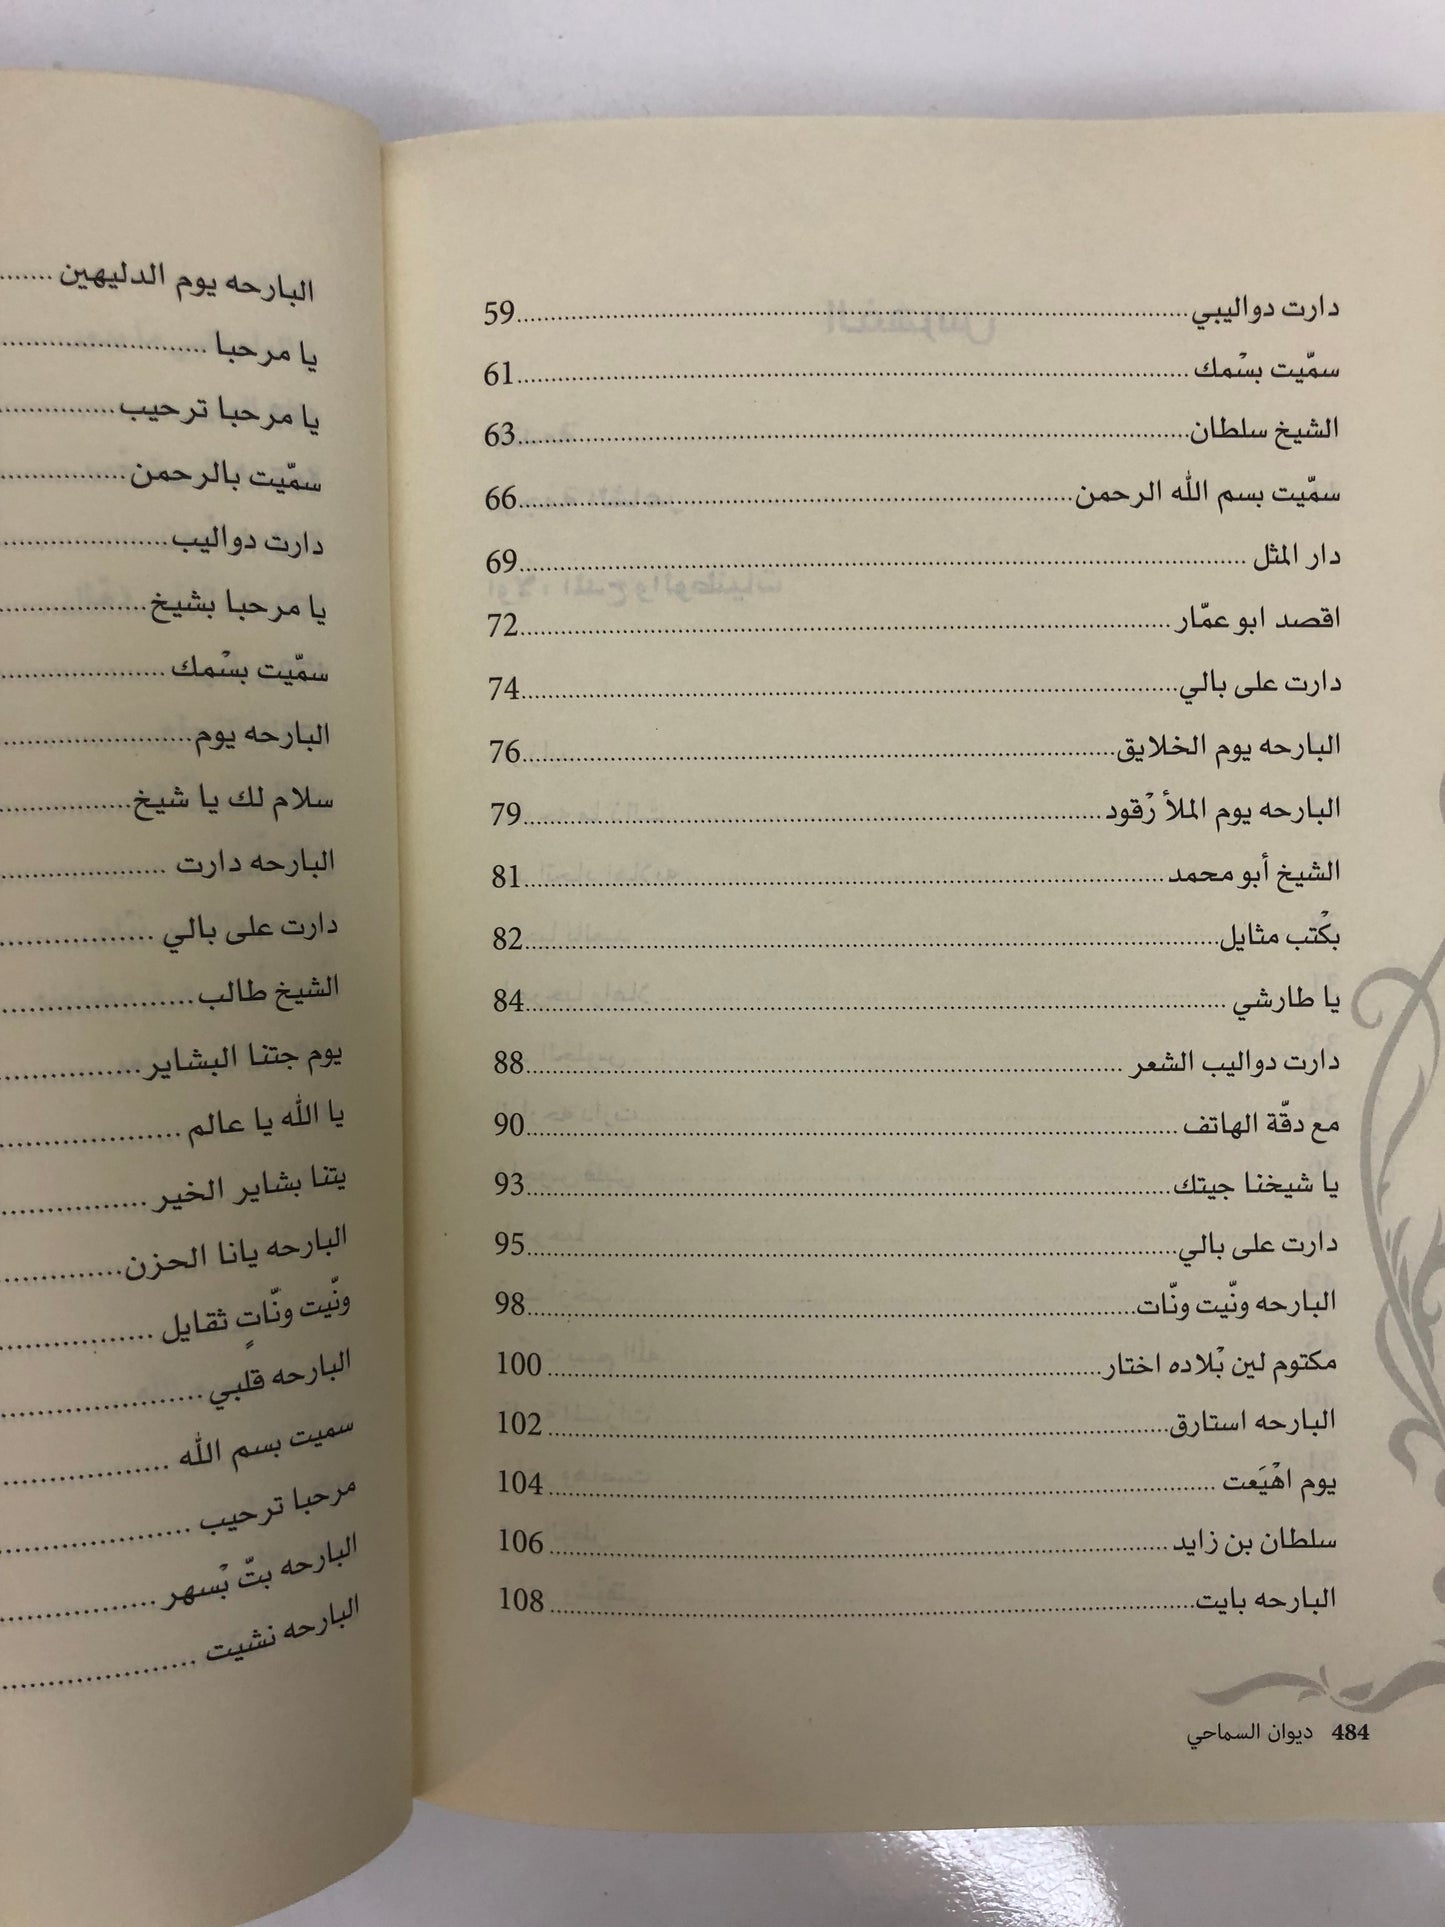 دارت دواليبي........59
سمّيت بسْمك........61
الشيخ سلطان........63
سمّيت بسم الله الرحمن........66
دار المثل........69
اقصد ابو عمّار........72
دارت على بالي........74
البارحه يوم الخلايق........76
البارحه يوم الملأ رْقود........79
الشيخ أبو محمد........81
بكْتب مثايل........82
يا طارشي........84
دارت دواليب الشعر........88
مع دقّة الهاتف........90
يا شيخنا جيتك........93
دارت على بالي........95
البارحه ونّيت ونّات........98
مكتوم لين بْلاده اختار........100
البارحه استارق........102
يوم اهْيَعت........104
سلطان بن زايد........106
البارحه بايت........108
484 ديوان السماحي
البارحه يوم الدليهين........
يا مرحبا........
يا مرحبا ترحيب........
سمّيت بالرحمن........
دارت دواليب........
يا مرحبا بشيخ........
سمّيت بسْمك........
البارحه يوم........
سلام لك يا شيخ........
البارحه دارت........
دارت على بالي........
الشيخ طالب........
يوم جتنا البشاير........
يا الله يا عالم........
يتنا بشاير الخير........
البارحه يانا الحزن........
ونّيت ونّاتٍ ثقايل........
البارحه قلبي........
سميت بسم الله........
مرحبا ترحيب........
البارحه بتّ بْسهر........
البارحه نشيت........